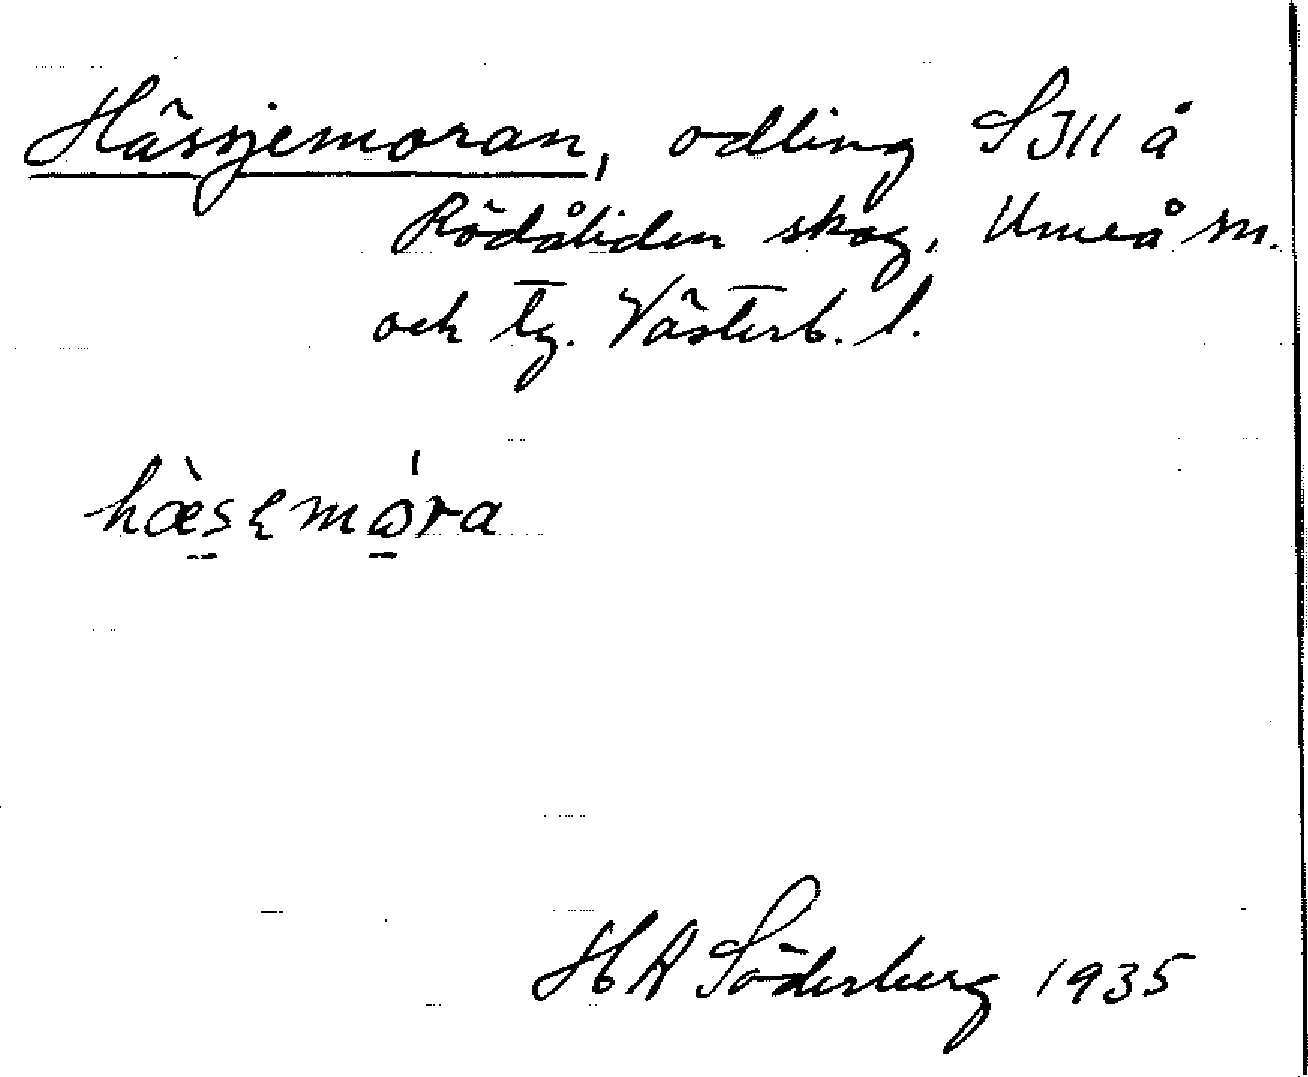 Hässjemoran, odling SIII å
Rödåliden skog, Umeå sn.
och tg. Västerb. l.
hæsemɷra
H A Söderberg 1935